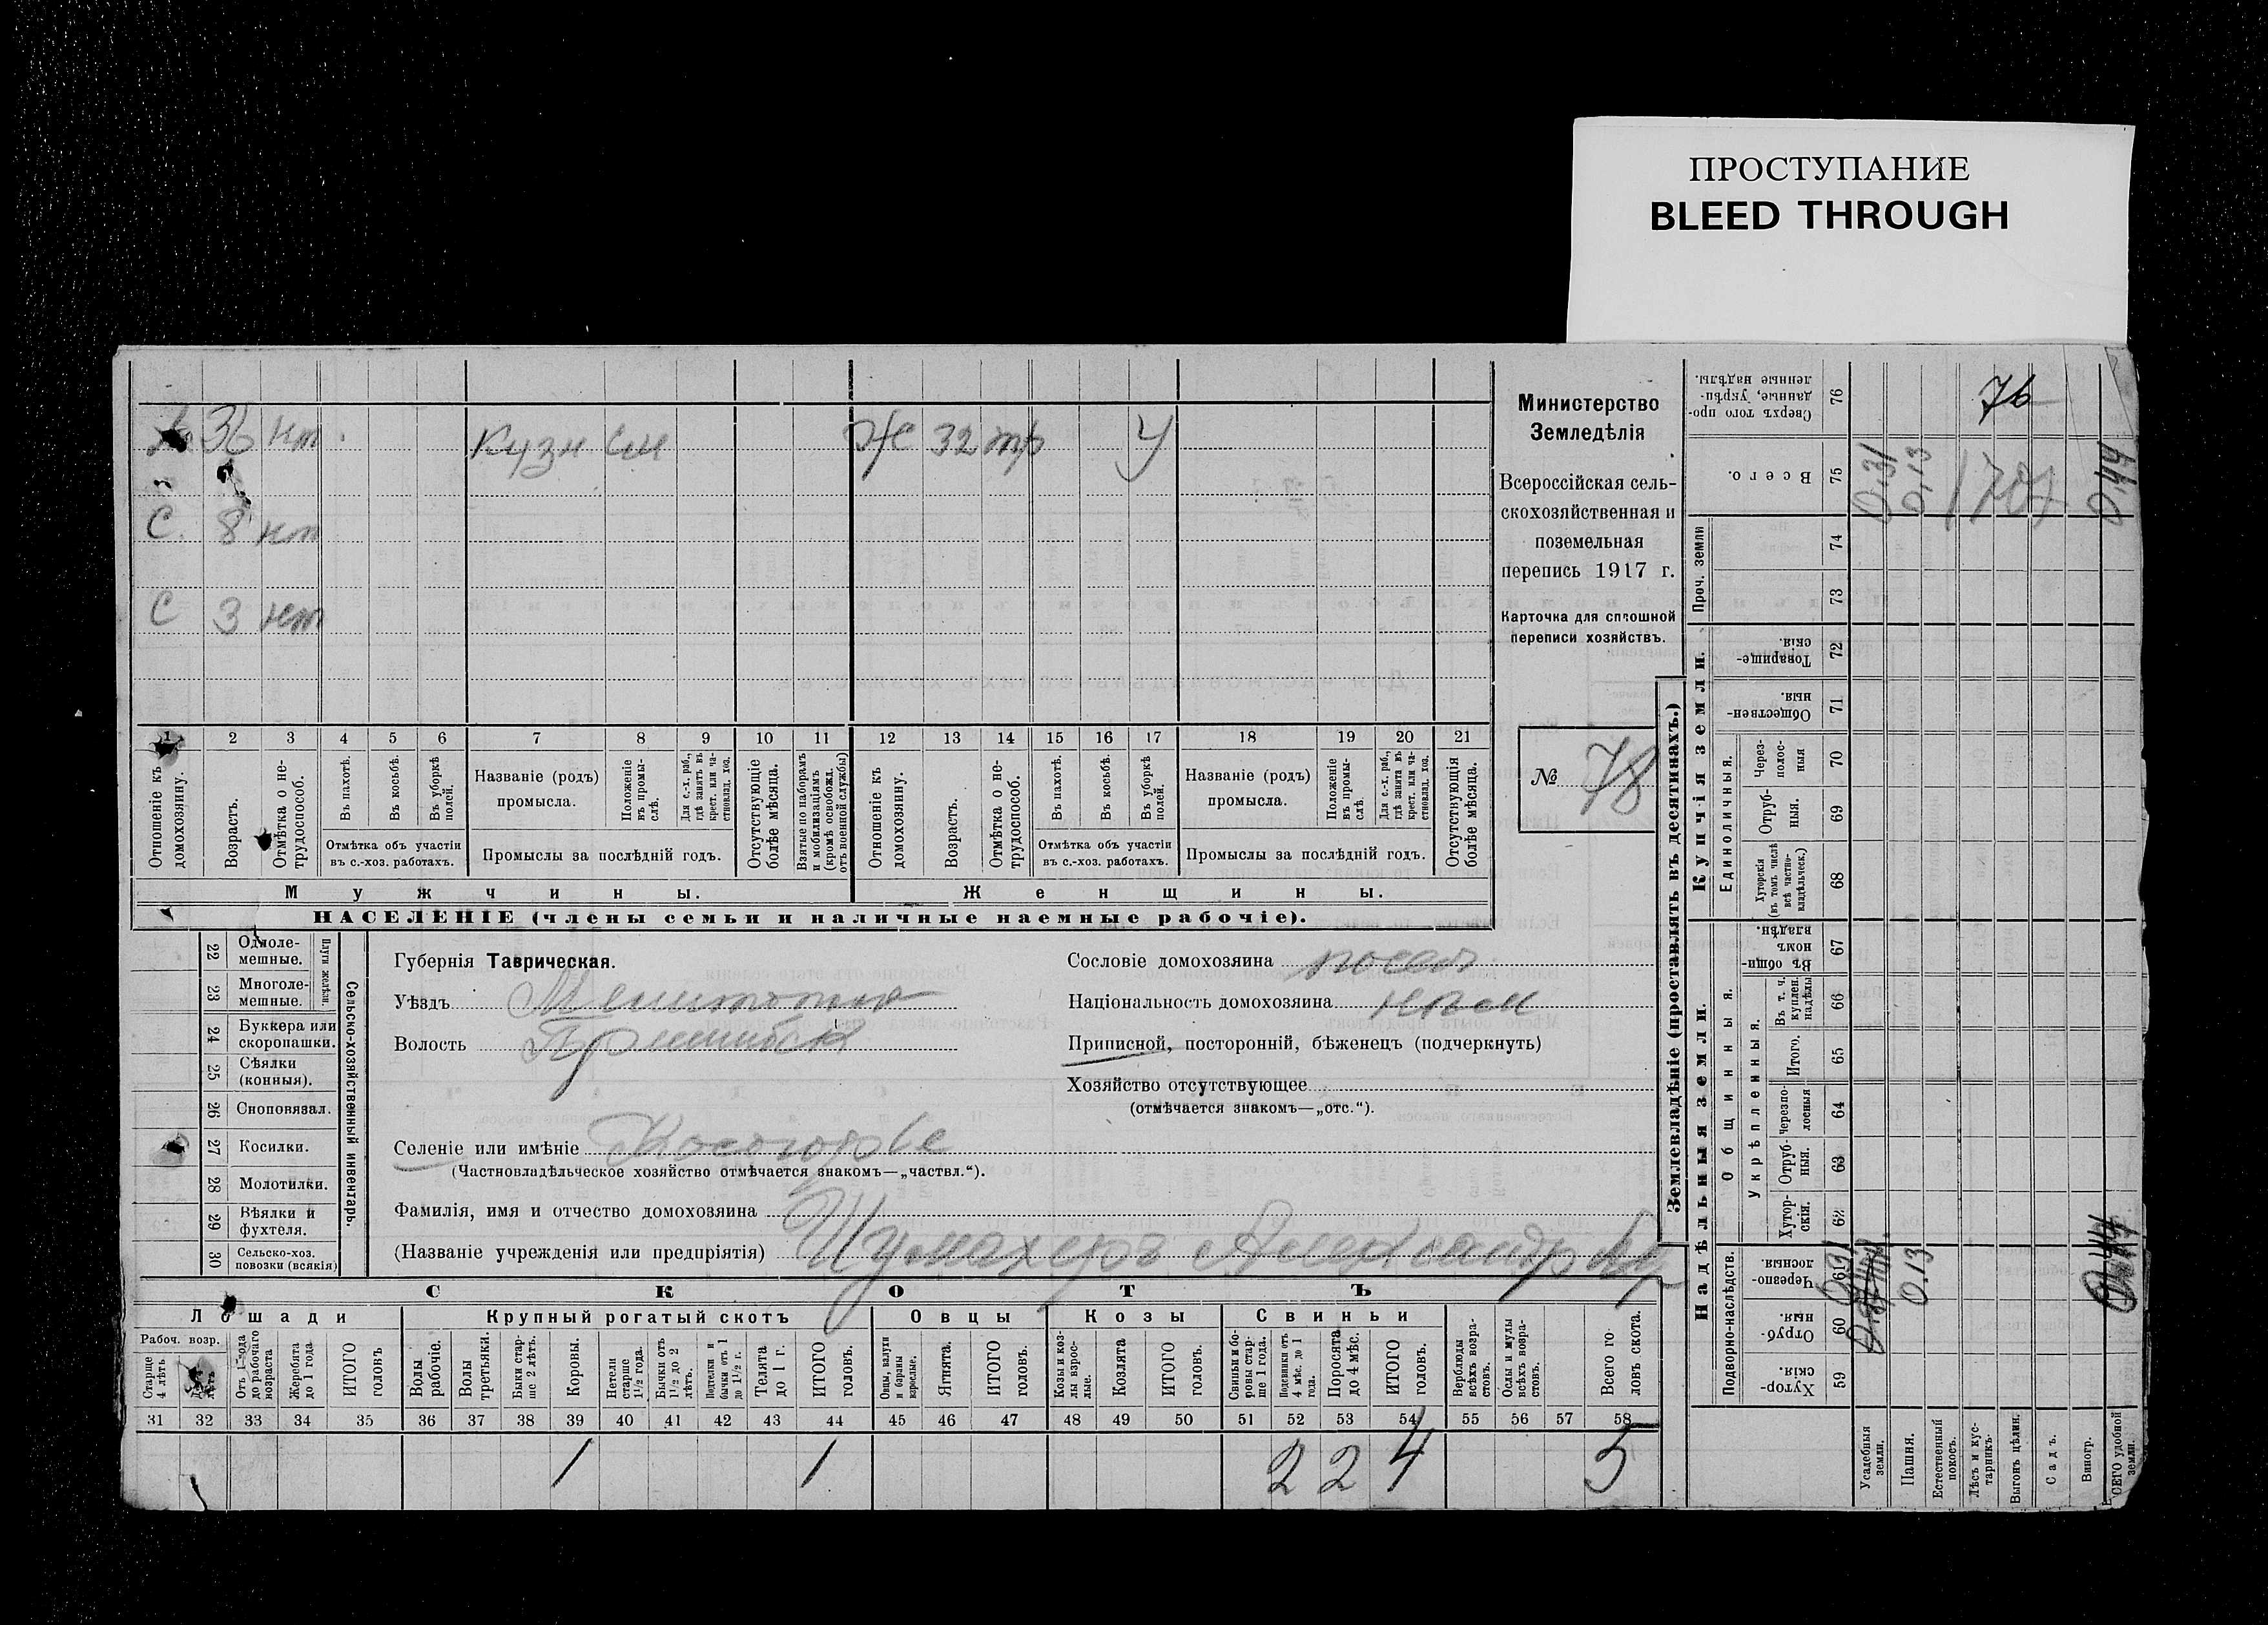 ПРОСТУПАНИЕ
BLEED THROUGH
36 нт. Кузн Ж 32 тр У
С 8 нт
С 3 нт
1 2 3 4 5 6 7 8 9 10 11 12 13 14 15 16 17 18 19 20 21
Отношеніе къ домохозяину.
Возрастъ.
Отмѣтка о нетрудоспособ.
Въ пахотѣ.
Въ косьбѣ.
Въ уборкѣ полей.
Отмѣтка объ участіи
въ с.-хоз. работахъ.
Названіе (родъ)
промысла.
Положеніе въ промыслѣ.
Для с.-х. раб., гдѣ занятъ въ крест. или частновлад. хоз.
Промыслы за послѣдній годъ.
Отсутствующіе болѣе мѣсяца.
Взятые по наборамъ и мобилизаціямъ (кромѣ освобожд. отъ военной службы)
Отношеніе къ домохозяину.
Возрастъ.
Отмѣтка о нетрудоспособ.
Въ пахотѣ.
Въ косьбѣ.
Въ уборкѣ полей.
Отмѣтка объ участіи
въ с.-хоз. работахъ.
Названіе (родъ)
промысла.
Положеніе въ промыслѣ.
Для с.-х. раб., гдѣ занята въ крест. или частновлад. хоз.
Промыслы за послѣдній годъ.
Отсутствующія болѣе мѣсяца.
Мужчины.
Женщины.
НАСЕЛЕНІЕ (члены семьи и наличные наемные рабочіе).
Министерство
Земледѣлія
Всероссійская сель-
скохозяйственная и
поземельная
перепись 1917 г.
Карточка для сплошной
переписи хозяйствъ.
№ 78
22 Одноле-
мешные.
23 Многоле-
мешные.
Плуги желѣзн.
24 Буккера или
скоропашки.
25 Сѣялки
(конныя).
26 Сноповязал.
27 Косилки.
28 Молотилки.
29 Вѣялки и
фухтеля.
30 Сельско-хоз.
повозки (всякія)
Сельско-хозяйственный инвентарь.
Губернія Таврическая.
Уѣздъ
Волость
Селеніе или имѣніе Косогоръе
(Частновладѣльческое хозяйство отмѣчается знакомъ—„частвл.“).
Фамилія, имя и отчество домохозяина
(Названіе учрежденія или предпріятія) Шумахеръ Александръ
Сословіе домохозяина посел.
Національность домохозяина нѣм
Приписной, посторонній, бѣженецъ (подчеркнуть)
Хозяйство отсутствующее
(отмѣчается знакомъ—„отс.“).
СКОТЪ
Лошади
Крупный рогатый скотъ
Овцы
Козы
Свиньи
Рабоч. возр.
Старше 4 лѣтъ.
лѣтъ
Отъ 1 года до рабочаго возраста
Жеребята до 1 года
ИТОГО головъ
Волы рабочіе.
Волы третьяки.
Быки старше 2 лѣтъ.
Коровы.
Нетели старше 1 1/2 года.
Бычки отъ 1 1/2 до 2 лѣтъ.
Подтелки и бычки отъ 1 до 1 1/2 г.
Телята до 1 г.
ИТОГО головъ.
Овцы, валухи и бараны взрослые.
Ягнята.
ИТОГО головъ.
Козы и козлы взрослые.
Козлята
ИТОГО головъ.
Свиньи и боровы старше 1 года.
Подсвинки отъ 4 мѣс. до 1 года.
Поросята до 4 мѣс.
ИТОГО головъ.
Верблюды всѣхъ возрастовъ.
Ослы и мулы всѣхъ возрастовъ.
Всего головъ скота.
31 32 33 34 35 36 37 38 39 40 41 42 43 44 45 46 47 48 49 50 51 52 53 54 55 56 57 58
1 1 2 2 4 5
Землевладѣніе (проставлять въ десятинахъ.)
Надѣльныя земли.
Купчія земли.
Проч. земли
Подворно-наслѣдств.
Общинныя.
Укрѣпленныя.
Единоличныя.
Сверхъ того проданные, укрѣпленные надѣлы. 76
Всего. 75
74
73
Товарищескія. 72
Общественныя. 71
Черезполосныя 70
Отрубныя. 69
Хуторскія (въ томъ числѣ всѣ частновладѣльческ.) 68
Въ общинномъ владѣн. 67
Въ т. ч. куплен. надѣлы 66
Итого. 65
Черезполосныя 64
Отрубныя. 63
Хуторскія. 62
Черезполосныя. 61
Отрубныя. 60
Хуторскія. 59
Усадебныя земли.
Пашня.
Естественный покосъ.
Лѣсъ и кустарникъ.
Выгонъ цѣлин.
Садъ.
Виногр.
ВСЕГО удобной земли.
76
0.31
0.13
0.44
0.13